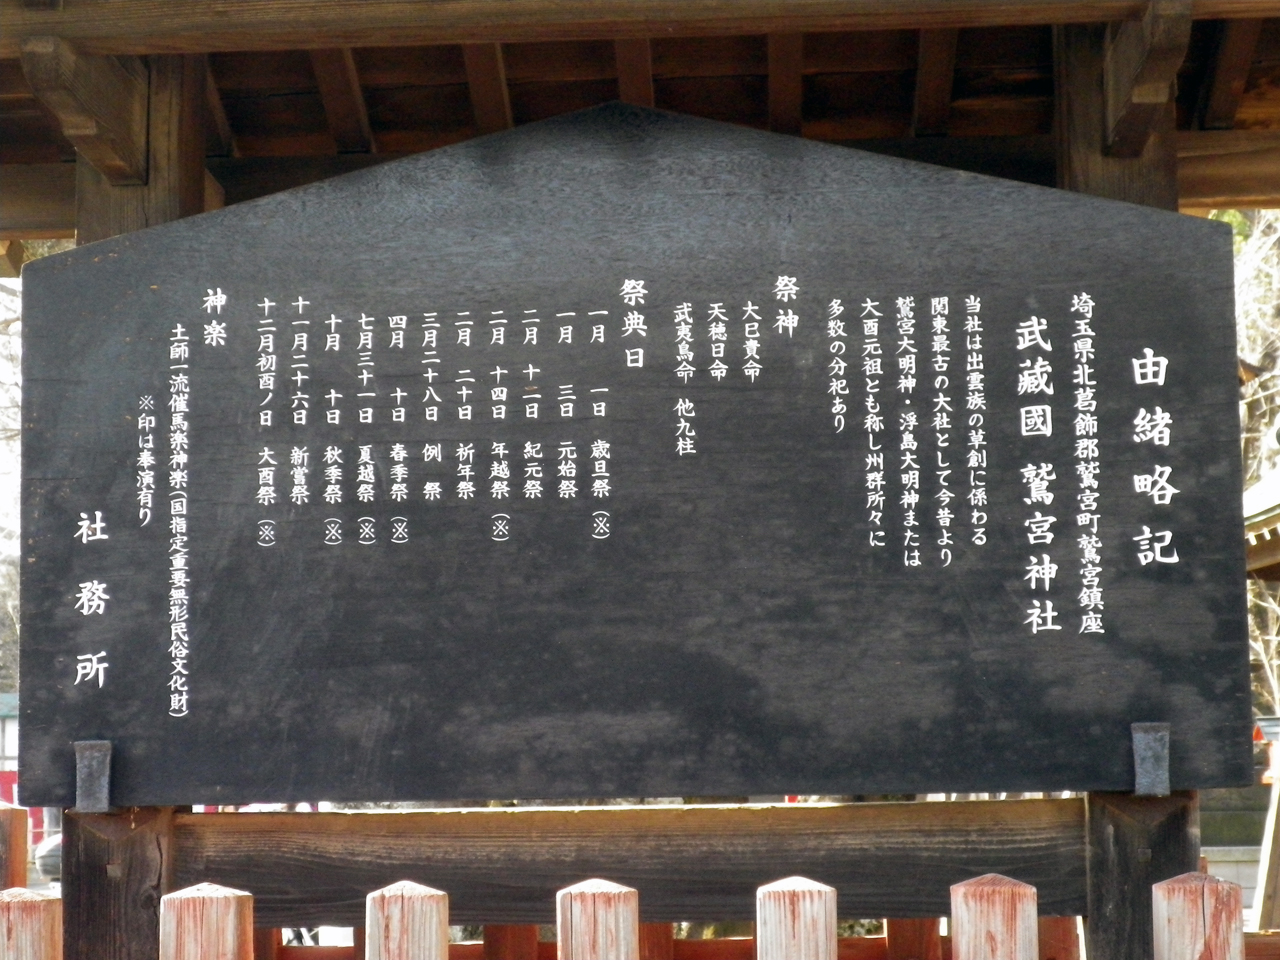 由緒略記
埼玉県北葛飾郡鷲宮町鷲宮鎮座
武蔵國 鷲宮神社
当社は出雲族の草創に係わる
関東最古の大社として今昔より
鷲宮大明神・浮島大明神または
大酉元祖とも称し州群所々に
多数の分祀あり
祭神
大巳貴命
天穂日命
武夷鳥命 他九柱
祭典日
一月 一日 歳旦祭(※)
一月 三日 元始祭
二月 十二日 紀元祭
二月 十四日 年越祭(※)
二月 二十日 祈年祭
三月二十八日 例祭
四月 十日 春季祭(※)
七月三十一日 夏越祭(※)
十月 十日 秋季祭(※)
十一月二十六日 新嘗祭
十二月初酉ノ日 大酉祭(※)
神楽
土師一流催馬楽神楽(国指定重要無形民俗文化財)
※印は奉演有り
社務所